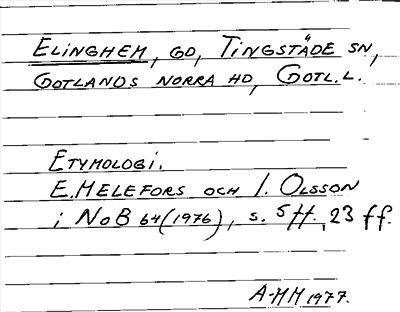 ELINGHEM, GD, TINGSTÄDE SN,
GOTLANDS NORRA HD, GOTL.L.
ETYMOLOGI.
E. MELEFORS OCH I. OLSSON
i NoB 64 (1976), s. 5 ff., 23 ff.
A-MH 1977.